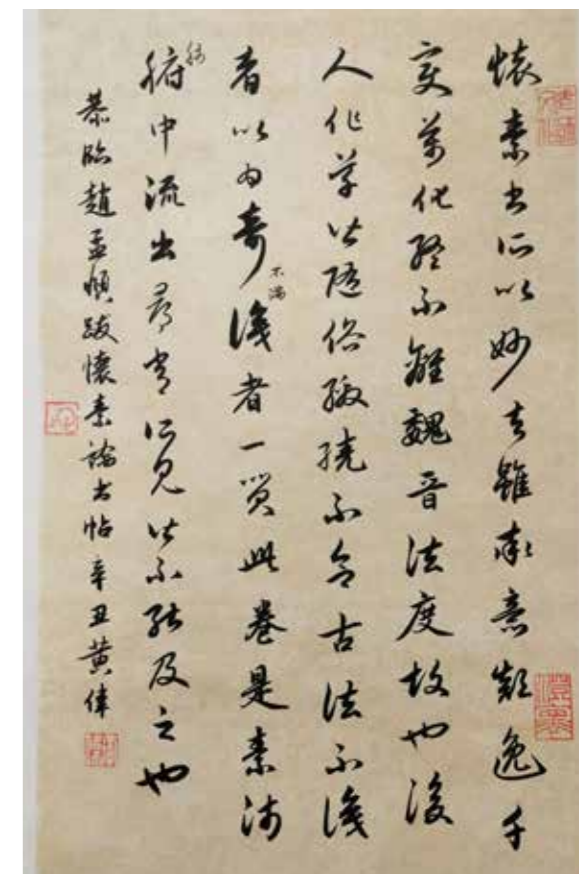 懷素書所以妙者雖率意顛逸千
變萬化終不離魏晉法度故也後
人作草皆隨俗繳繞不合古法不識
者以為奇不滿識者一笑此卷是素師
肺腑中流出尋常所見皆不能及之也
恭臨趙孟頫跋懷素論書帖辛丑黃偉